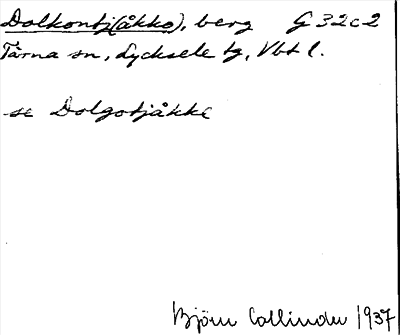 Dolkontj(åkko), berg G 32 c 2
Tärna sn, Lycksele tg, Vbt l.
se Dolgotjåkke
Björn Collinder 1937